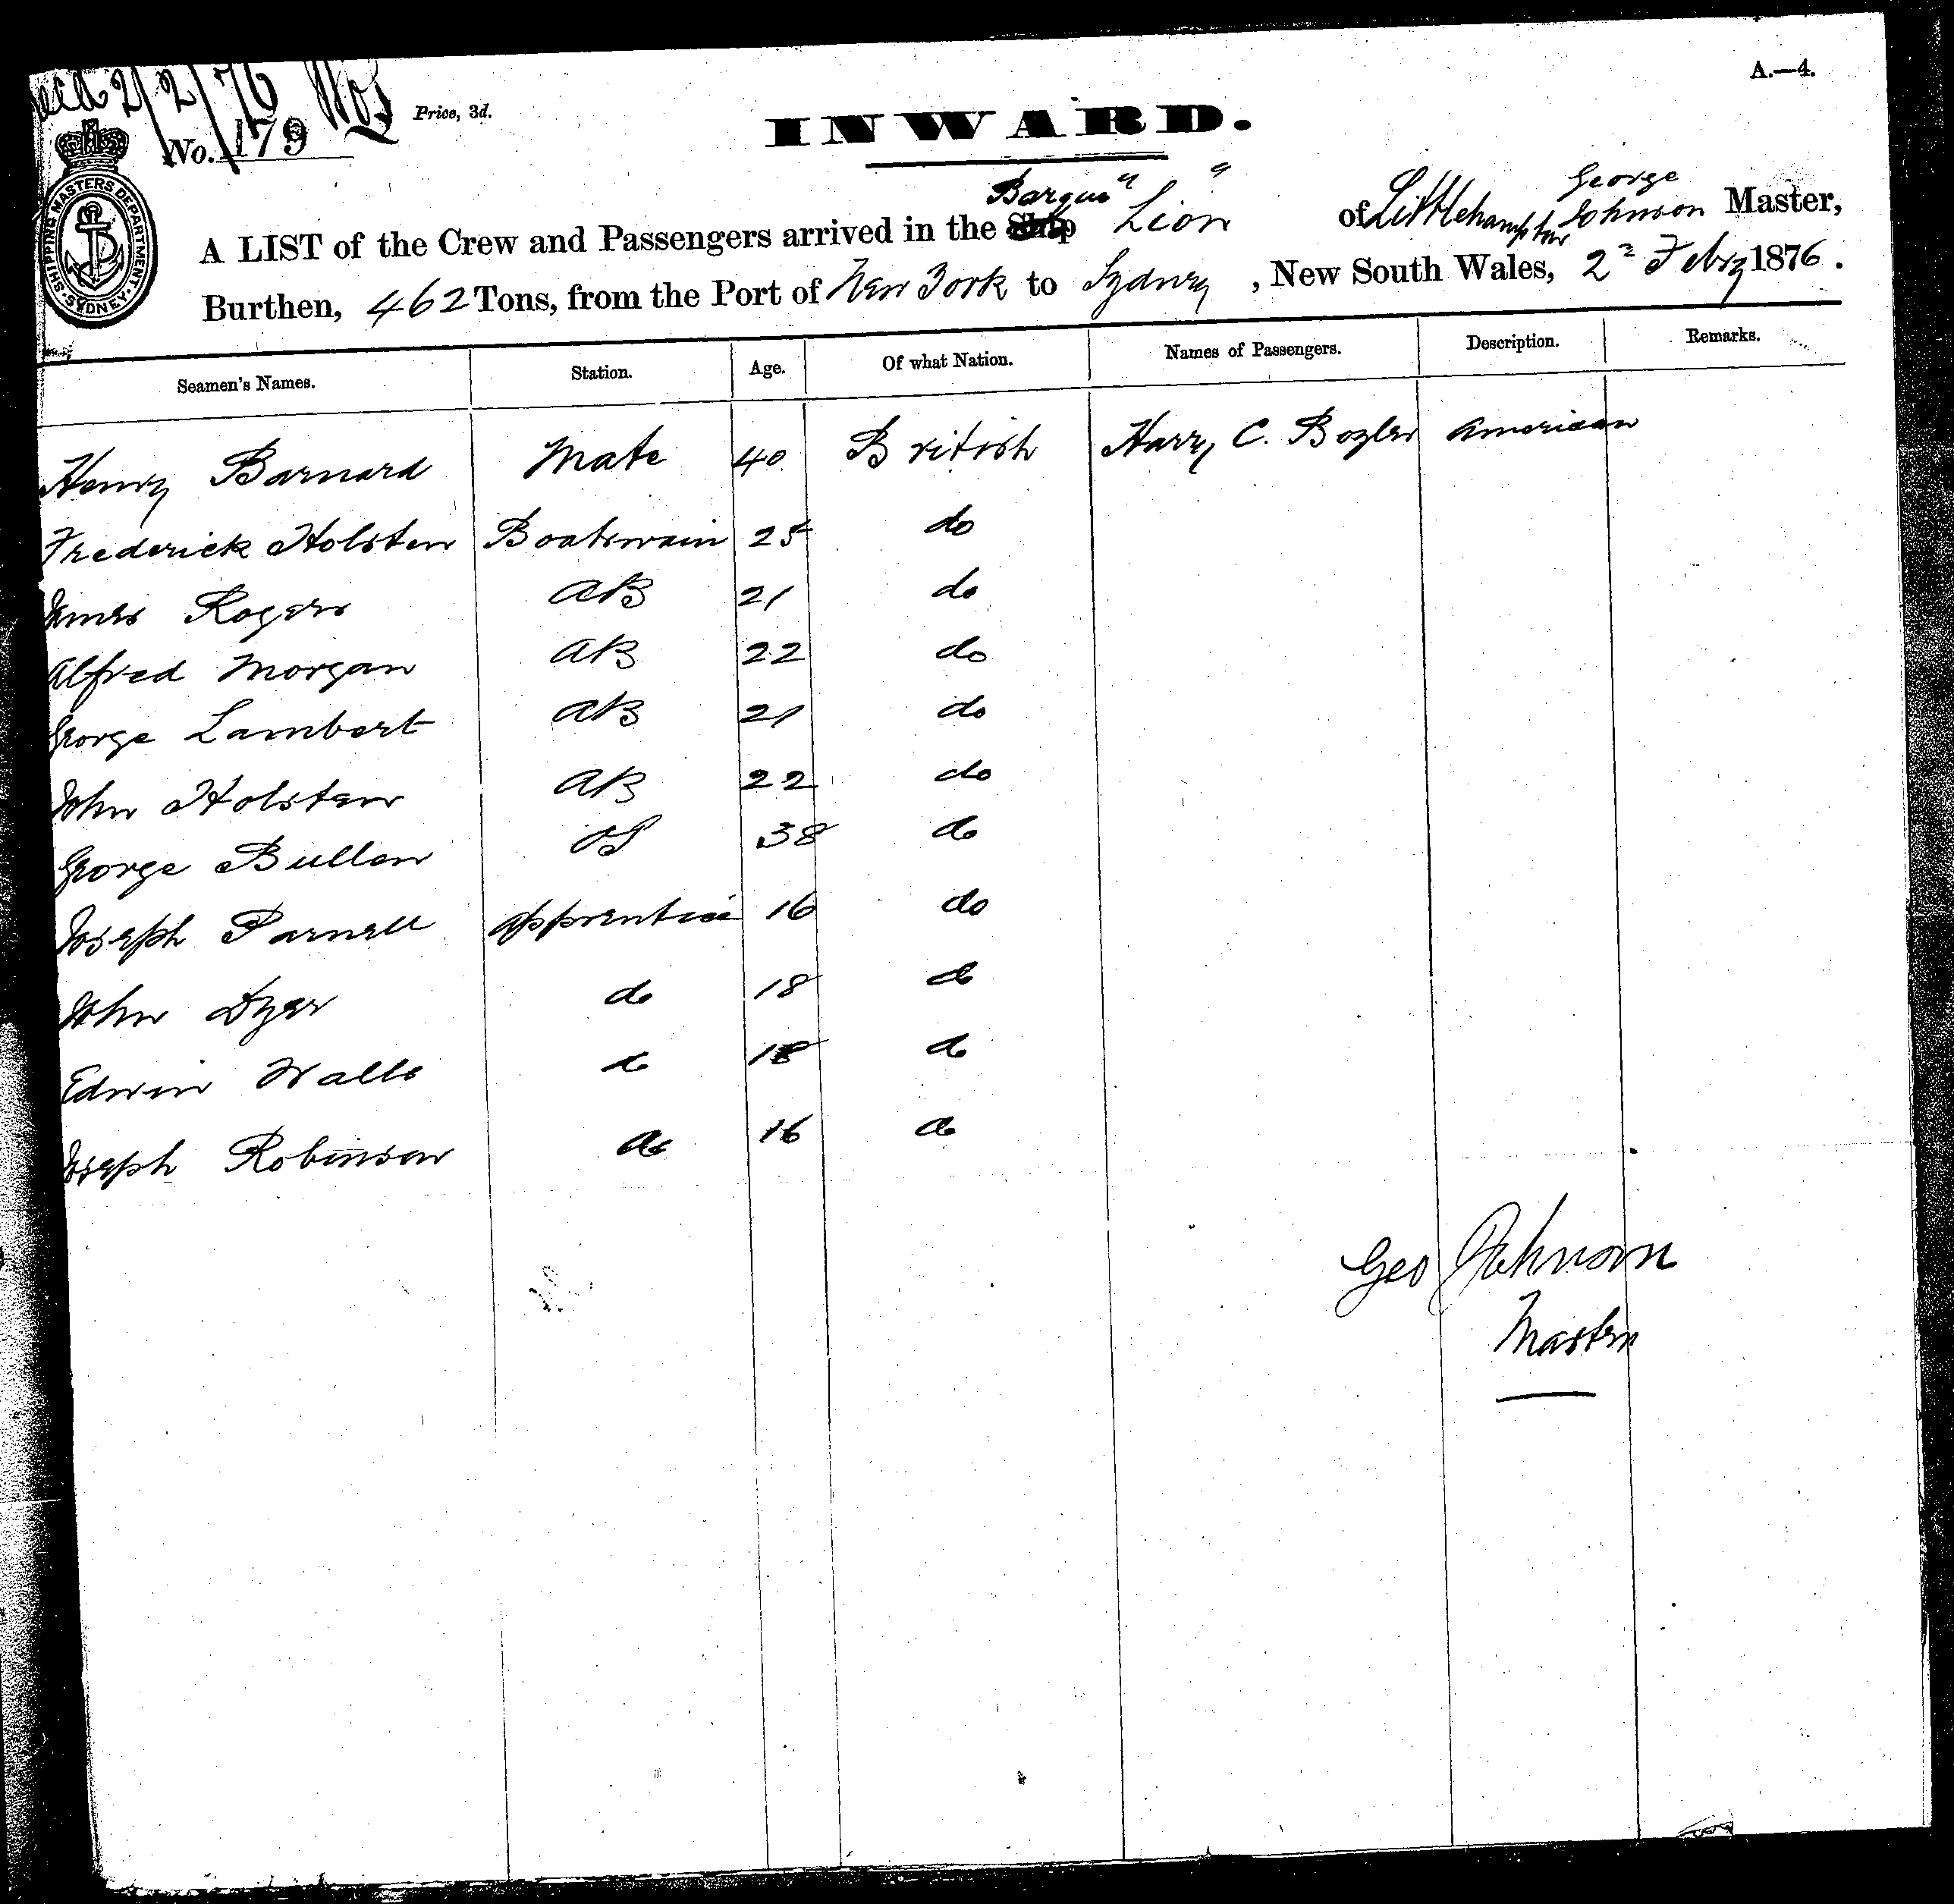 Recd 2/2/76
A.—4.
Price, 3d.
No. 179
INWARD.
SHIPPING MASTERS DEPARTMENT. SYDNEY.
Barque George
A LIST of the Crew and Passengers arrived in the Ship "Lion" of Littlehampton Johnson Master,
Burthen, 462 Tons, from the Port of New York to Sydney, New South Wales, 2nd Febry 1876.
Seamen's Names. Station. Age. Of what Nation. Names of Passengers. Description. Remarks.
Henry Barnard Mate 40 British Harry C. American
Frederick Holsten Boatswain 25 do
James Rogers AB 21 do
Alfred Morgan AB 22 do
George Lambert AB 21 do
John Holsten AB 22 do
George Bullen OS 38 do
Joseph Parnell Apprentice 16 do
John Dyer do 18 do
Edwin Walls do 18 do
Joseph Robinson do 16 do
Geo Johnson
Master